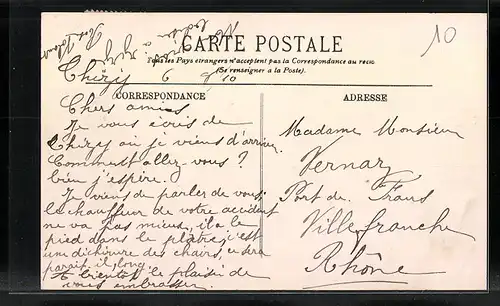 10
CARTE POSTALE
Tous les Pays étrangers n'acceptent pas la Correspondance au recto
(Se renseigner à la Poste).
Thizy 6 9 10
CORRESPONDANCE
Chers amis
Je vous écris de
Thizy où je viens d'arriver.
Comment allez-vous ?
bien j'espère.
Je viens de parler de vous;
le chauffeur de votre accident
ne va pas mieux, il a le
pied dans le plâtre, c'est
un déchirure des chairs, ce sera
parait-il long.
A bientôt le plaisir de
vous embrasser.
ADRESSE
Madame Monsieur
Vernay
Port de Frans
Villefranche
Rhône